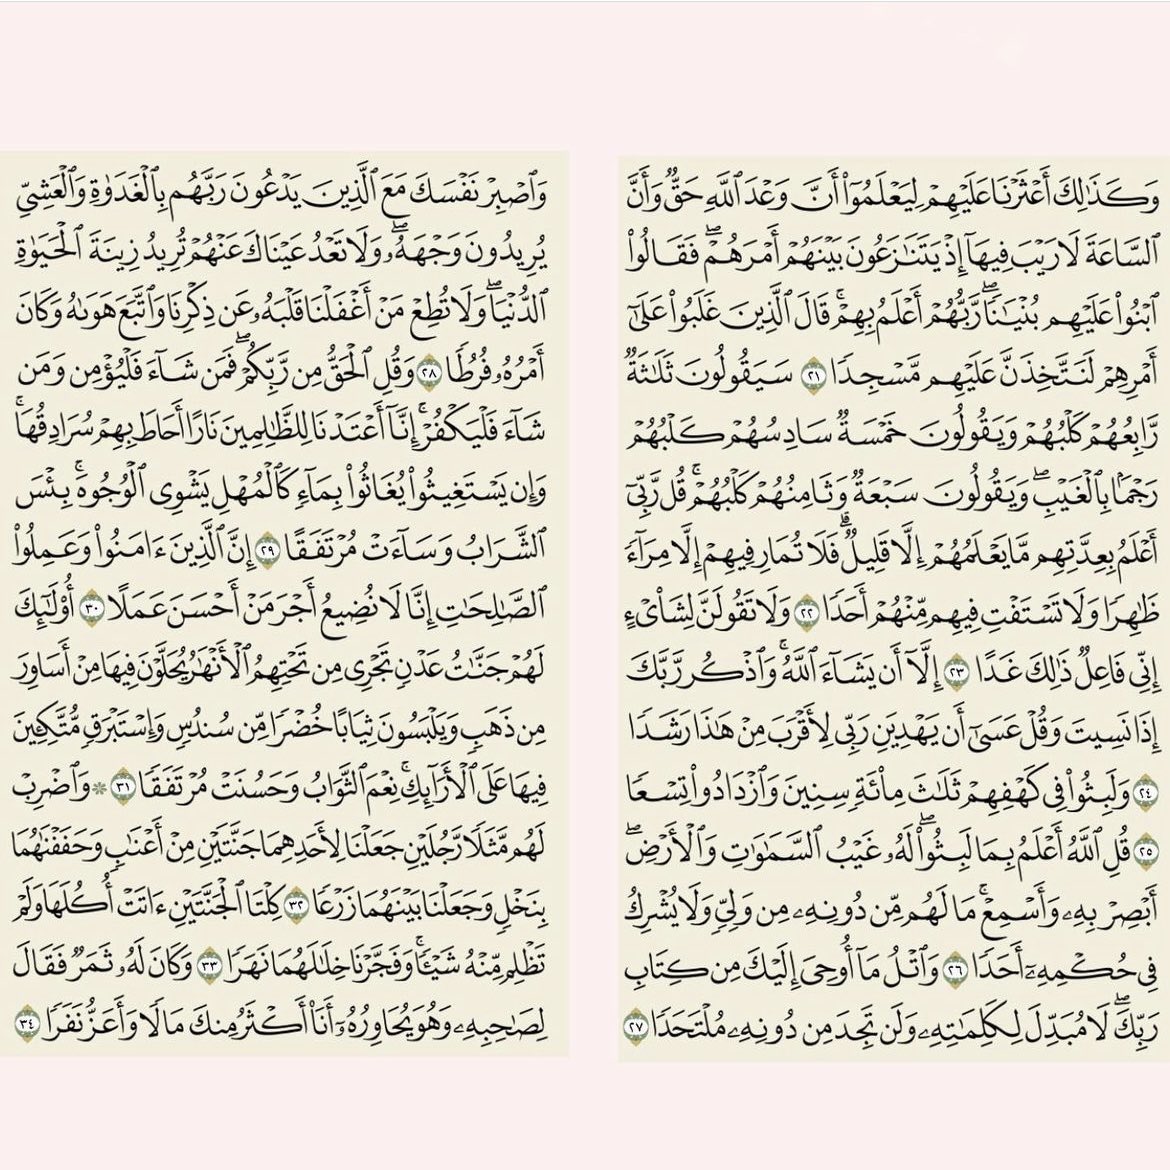 وَكَذَٰلِكَ أَعْثَرْنَا عَلَيْهِمْ لِيَعْلَمُوٓا۟ أَنَّ وَعْدَ ٱللَّهِ حَقٌّ وَأَنَّ
ٱلسَّاعَةَ لَا رَيْبَ فِيهَآ إِذْ يَتَنَٰزَعُونَ بَيْنَهُمْ أَمْرَهُمْ ۖ فَقَالُوا۟
ٱبْنُوا۟ عَلَيْهِم بُنْيَٰنًا ۖ رَّبُّهُمْ أَعْلَمُ بِهِمْ ۚ قَالَ ٱلَّذِينَ غَلَبُوا۟ عَلَىٰٓ
أَمْرِهِمْ لَنَتَّخِذَنَّ عَلَيْهِم مَّسْجِدًا ٢١ سَيَقُولُونَ ثَلَٰثَةٌ
رَّابِعُهُمْ كَلْبُهُمْ وَيَقُولُونَ خَمْسَةٌ سَادِسُهُمْ كَلْبُهُمْ
رَجْمًۢا بِٱلْغَيْبِ ۖ وَيَقُولُونَ سَبْعَةٌ وَثَامِنُهُمْ كَلْبُهُمْ ۚ قُل رَّبِّىٓ
أَعْلَمُ بِعِدَّتِهِم مَّا يَعْلَمُهُمْ إِلَّا قَلِيلٌ ۗ فَلَا تُمَارِ فِيهِمْ إِلَّا مِرَآءً
ظَٰهِرًا وَلَا تَسْتَفْتِ فِيهِم مِّنْهُمْ أَحَدًا ٢٢ وَلَا تَقُولَنَّ لِشَا۟ىْءٍ
إِنِّى فَاعِلٌ ذَٰلِكَ غَدًا ٢٣ إِلَّآ أَن يَشَآءَ ٱللَّهُ ۚ وَٱذْكُر رَّبَّكَ
إِذَا نَسِيتَ وَقُلْ عَسَىٰٓ أَن يَهْدِيَنِ رَبِّى لِأَقْرَبَ مِنْ هَٰذَا رَشَدًا
٢٤ وَلَبِثُوا۟ فِى كَهْفِهِمْ ثَلَٰثَ مِا۟ئَةٍ سِنِينَ وَٱزْدَادُوا۟ تِسْعًا
٢٥ قُلِ ٱللَّهُ أَعْلَمُ بِمَا لَبِثُوا۟ ۖ لَهُۥ غَيْبُ ٱلسَّمَٰوَٰتِ وَٱلْأَرْضِ ۖ
أَبْصِرْ بِهِۦ وَأَسْمِعْ ۚ مَا لَهُم مِّن دُونِهِۦ مِن وَلِىٍّ وَلَا يُشْرِكُ
فِى حُكْمِهِۦٓ أَحَدًا ٢٦ وَٱتْلُ مَآ أُوحِىَ إِلَيْكَ مِن كِتَابِ
رَبِّكَ ۖ لَا مُبَدِّلَ لِكَلِمَٰتِهِۦ وَلَن تَجِدَ مِن دُونِهِۦ مُلْتَحَدًا ٢٧
وَٱصْبِرْ نَفْسَكَ مَعَ ٱلَّذِينَ يَدْعُونَ رَبَّهُم بِٱلْغَدَوٰةِ وَٱلْعَشِىِّ
يُرِيدُونَ وَجْهَهُۥ ۖ وَلَا تَعْدُ عَيْنَاكَ عَنْهُمْ تُرِيدُ زِينَةَ ٱلْحَيَوٰةِ
ٱلدُّنْيَا ۖ وَلَا تُطِعْ مَنْ أَغْفَلْنَا قَلْبَهُۥ عَن ذِكْرِنَا وَٱتَّبَعَ هَوَىٰهُ وَكَانَ
أَمْرُهُۥ فُرُطًا ٢٨ وَقُلِ ٱلْحَقُّ مِن رَّبِّكُمْ ۖ فَمَن شَآءَ فَلْيُؤْمِن وَمَن
شَآءَ فَلْيَكْفُرْ ۚ إِنَّآ أَعْتَدْنَا لِلظَّٰلِمِينَ نَارًا أَحَاطَ بِهِمْ سُرَادِقُهَا ۚ
وَإِن يَسْتَغِيثُوا۟ يُغَاثُوا۟ بِمَآءٍ كَٱلْمُهْلِ يَشْوِى ٱلْوُجُوهَ ۚ بِئْسَ
ٱلشَّرَابُ وَسَآءَتْ مُرْتَفَقًا ٢٩ إِنَّ ٱلَّذِينَ ءَامَنُوا۟ وَعَمِلُوا۟
ٱلصَّٰلِحَٰتِ إِنَّا لَا نُضِيعُ أَجْرَ مَنْ أَحْسَنَ عَمَلًا ٣٠ أُو۟لَٰٓئِكَ
لَهُمْ جَنَّٰتُ عَدْنٍ تَجْرِى مِن تَحْتِهِمُ ٱلْأَنْهَٰرُ يُحَلَّوْنَ فِيهَا مِنْ أَسَاوِرَ
مِن ذَهَبٍ وَيَلْبَسُونَ ثِيَابًا خُضْرًا مِّن سُندُسٍ وَإِسْتَبْرَقٍ مُّتَّكِـِٔينَ
فِيهَا عَلَى ٱلْأَرَآئِكِ ۚ نِعْمَ ٱلثَّوَابُ وَحَسُنَتْ مُرْتَفَقًا ٣١ ۞ وَٱضْرِبْ
لَهُم مَّثَلًا رَّجُلَيْنِ جَعَلْنَا لِأَحَدِهِمَا جَنَّتَيْنِ مِنْ أَعْنَٰبٍ وَحَفَفْنَٰهُمَا
بِنَخْلٍ وَجَعَلْنَا بَيْنَهُمَا زَرْعًا ٣٢ كِلْتَا ٱلْجَنَّتَيْنِ ءَاتَتْ أُكُلَهَا وَلَمْ
تَظْلِم مِّنْهُ شَيْـًٔا ۚ وَفَجَّرْنَا خِلَٰلَهُمَا نَهَرًا ٣٣ وَكَانَ لَهُۥ ثَمَرٌ فَقَالَ
لِصَٰحِبِهِۦ وَهُوَ يُحَاوِرُهُۥٓ أَنَا۠ أَكْثَرُ مِنكَ مَالًا وَأَعَزُّ نَفَرًا ٣٤